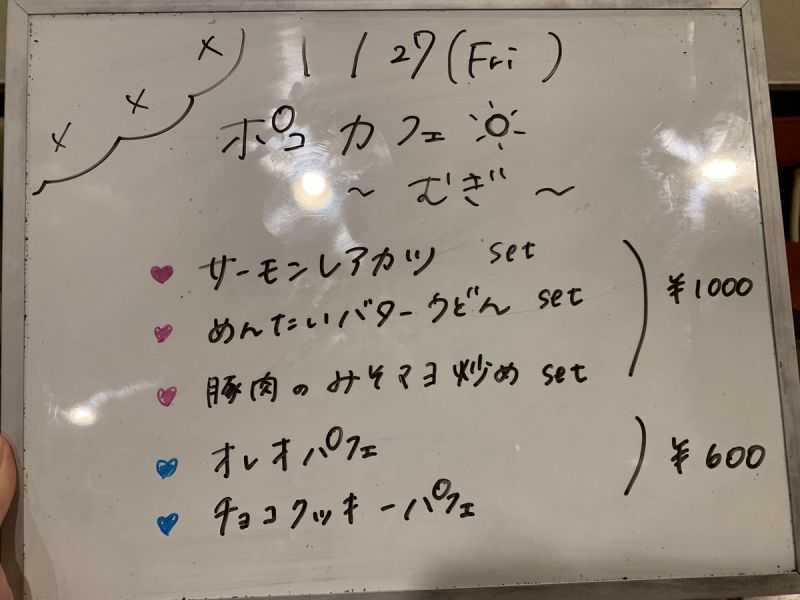 11/27(Fri)
ポコカフェ
～むぎ～
サーモンレアカツ set
めんたいバターうどん set
豚肉のみそマヨ炒め set
¥1000
オレオパフェ
チョコクッキーパフェ
¥600